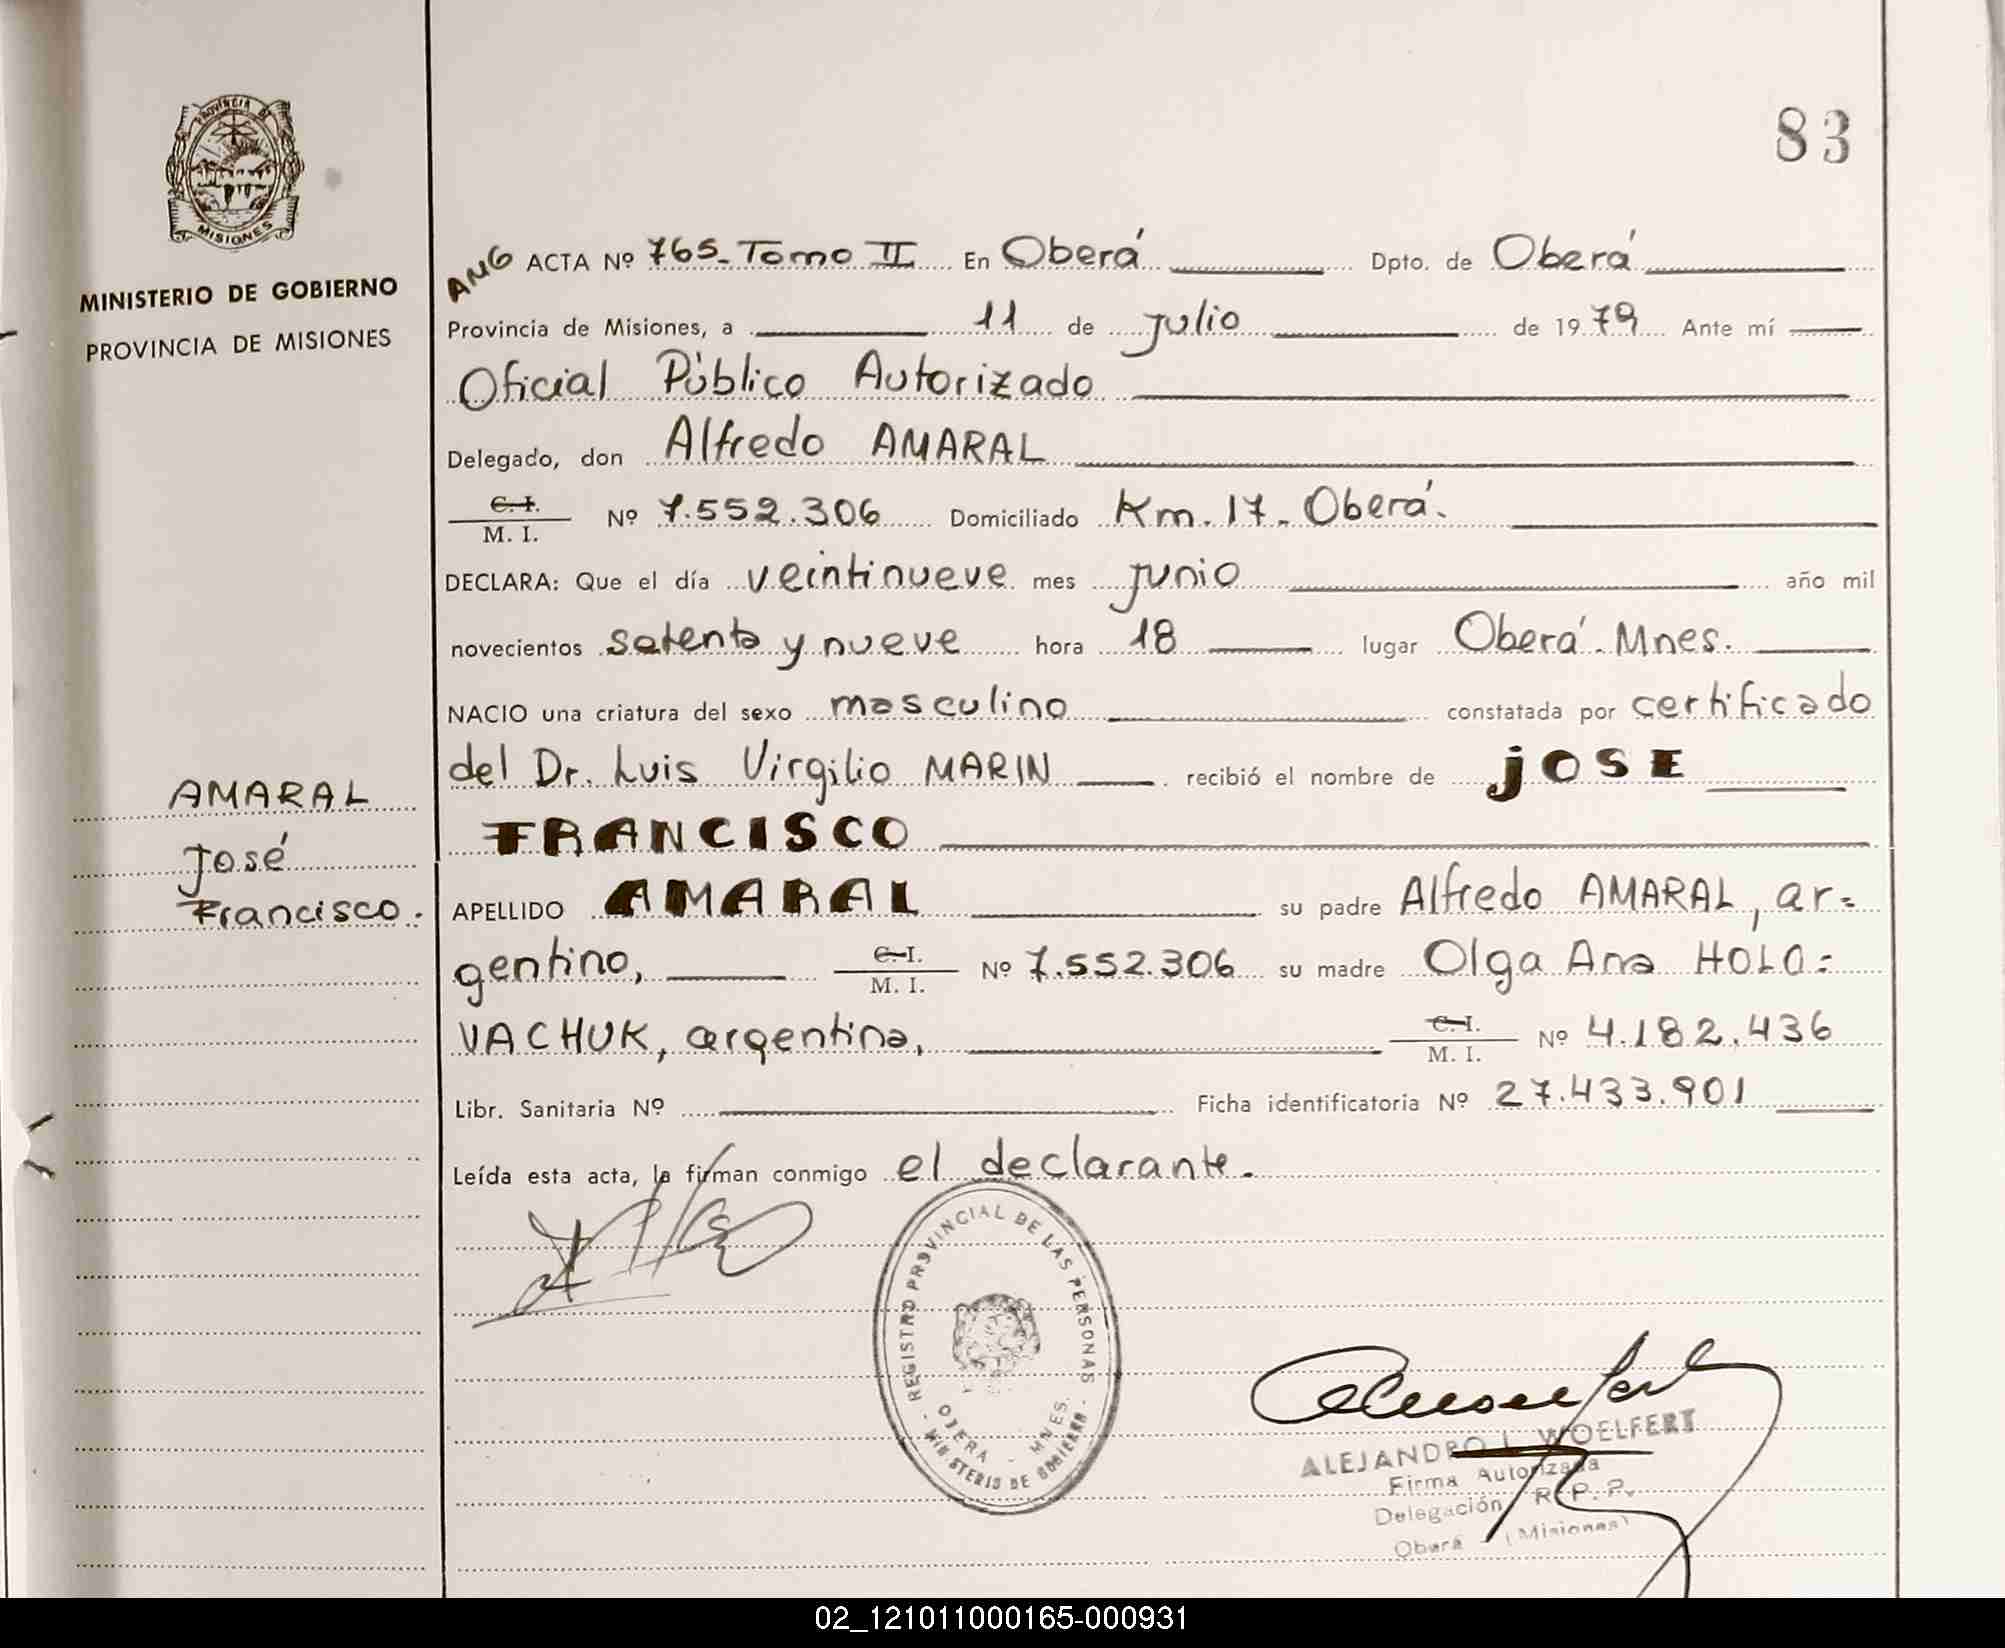 83
PROVINCIA DE
MISIONES
MINISTERIO DE GOBIERNO
PROVINCIA DE MISIONES
ANG ACTA Nº 765 - Tomo II En Oberá Dpto. de Oberá
Provincia de Misiones, a 11 de julio de 1979 Ante mí
Oficial Público Autorizado
Delegado, don Alfredo AMARAL
C. I.
M. I. Nº 7.552.306 Domiciliado Km. 17 - Oberá.
DECLARA: Que el día veintinueve mes junio año mil
novecientos setenta y nueve hora 18 lugar Oberá - Mnes.
NACIO una criatura del sexo masculino constatada por certificado
del Dr. Luis Virgilio MARIN recibió el nombre de JOSE
FRANCISCO
AMARAL
José
Francisco.
APELLIDO AMARAL su padre Alfredo AMARAL, ar=
gentino, C. I.
M. I. Nº 7.552.306 su madre Olga Ana HOLO=
VACHUK, argentina, C. I.
M. I. Nº 4.182.436
Libr. Sanitaria Nº Ficha identificatoria Nº 27.433.901
Leída esta acta, la firman conmigo el declarante.
REGISTRO PROVINCIAL DE LAS PERSONAS
OBERA - MNES.
- MINISTERIO DE GOBIERNO -
ALEJANDRO L. WOELFERT
Firma Autorizada
Delegación R. P. P.
Oberá - (Misiones)
02_121011000165-000931